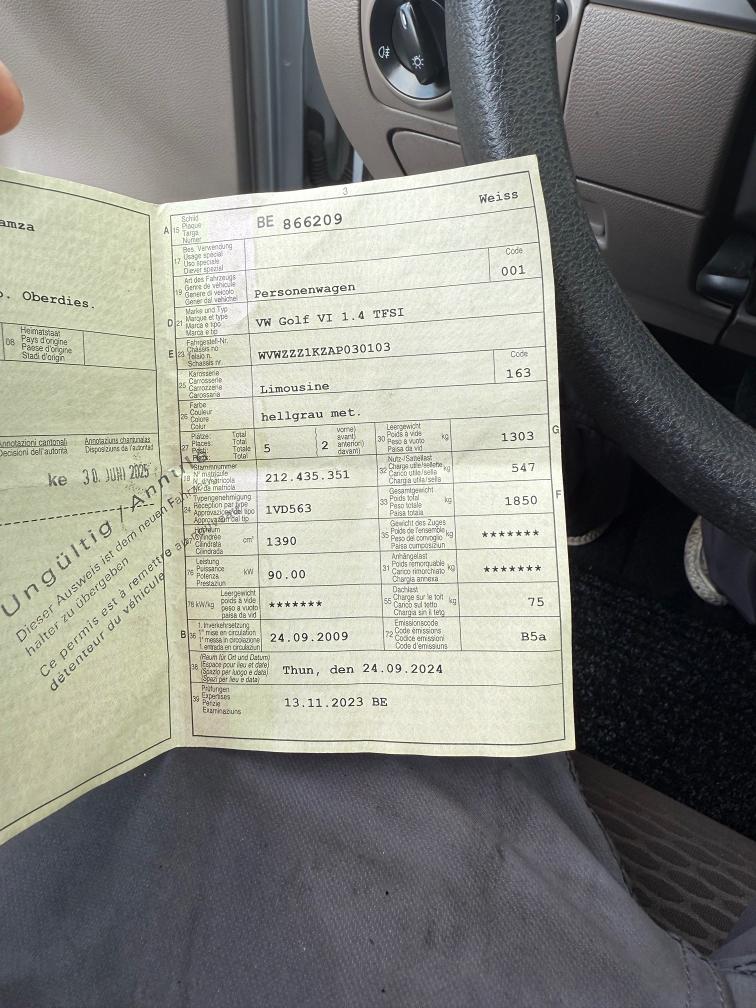 amza
o. Oberdies.
08 Heimatstaat
Pays d'origine
Paese d'origine
Stadi d'origin
Annotazioni cantonali
Decisioni dell'autorità
Annotaziuns chantunalas
Disposiziuns da l'autoritad
ke 30. JUNI 2025
Ungültig / Annulé
Dieser Ausweis ist dem neuen Fahrzeug-
halter zu übergeben
Ce permis est à remettre au
détenteur du véhicule
3
A 15 Schild
Plaque
Targa
Numer
BE 866209
Weiss
17 Bes. Verwendung
Usage spécial
Uso speciale
Diever spezial
19 Art des Fahrzeugs
Genre de véhicule
Genere di veicolo
Gener dal vehichel
Personenwagen
Code
001
D 21 Marke und Typ
Marque et type
Marca e tipo
Marca e tip
VW Golf VI 1.4 TFSI
E 23 Fahrgestell-Nr.
Châssis no
Telaio n.
Schassis nr.
WVWZZZ1KZAP030103
25 Karosserie
Carrosserie
Carrozzeria
Carossaria
Limousine
Code
163
26 Farbe
Couleur
Colore
Colur
hellgrau met.
27 Plätze: Total
Places: Total
Posti: Totale
Total
5
2 vorne)
avant)
anteriori)
davant)
30 Leergewicht
Poids à vide
Peso a vuoto
Paisa da vid
kg
1303
G
18 Stammnummer
N° matricule
N. di matricola
Nr. da matricla
212.435.351
32 Nutz-/Sattellast
Charge utile/sellette
Carico utile/sella
Chargia utila/sella
kg
547
24 Typengenehmigung
Réception par type
Approvazione del tipo
Approvaziun dal tip
1VD563
33 Gesamtgewicht
Poids total
Peso totale
Paisa totala
kg
1850
F
Hubraum
Cylindrée
Cilindrata
Cilindrada
cm³
1390
35 Gewicht des Zuges
Poids de l'ensemble
Peso del convoglio
Paisa cumposiziun
kg
*******
76 Leistung
Puissance
Potenza
Prestaziun
kW
90.00
31 Anhängelast
Poids remorquable
Carico rimorchiato
Chargia annexa
kg
*******
78 kW/kg
Leergewicht
poids à vide
peso a vuoto
paisa da vid
*******
55 Dachlast
Charge sur le toit
Carico sul tetto
Chargia sin il tetg
kg
75
B 36 1. Inverkehrsetzung
1re mise en circulation
1a messa in circolazione
1. entrada en circulaziun
24.09.2009
72 Emissionscode
Code émissions
Codice emissioni
Code d'emissiuns
B5a
38 (Raum für Ort und Datum)
(Espace pour lieu et date)
(Spazio per luogo e data)
(Spazi per lieu e data)
Thun, den 24.09.2024
39 Prüfungen
Expertises
Perizie
Examinaziuns
13.11.2023 BE